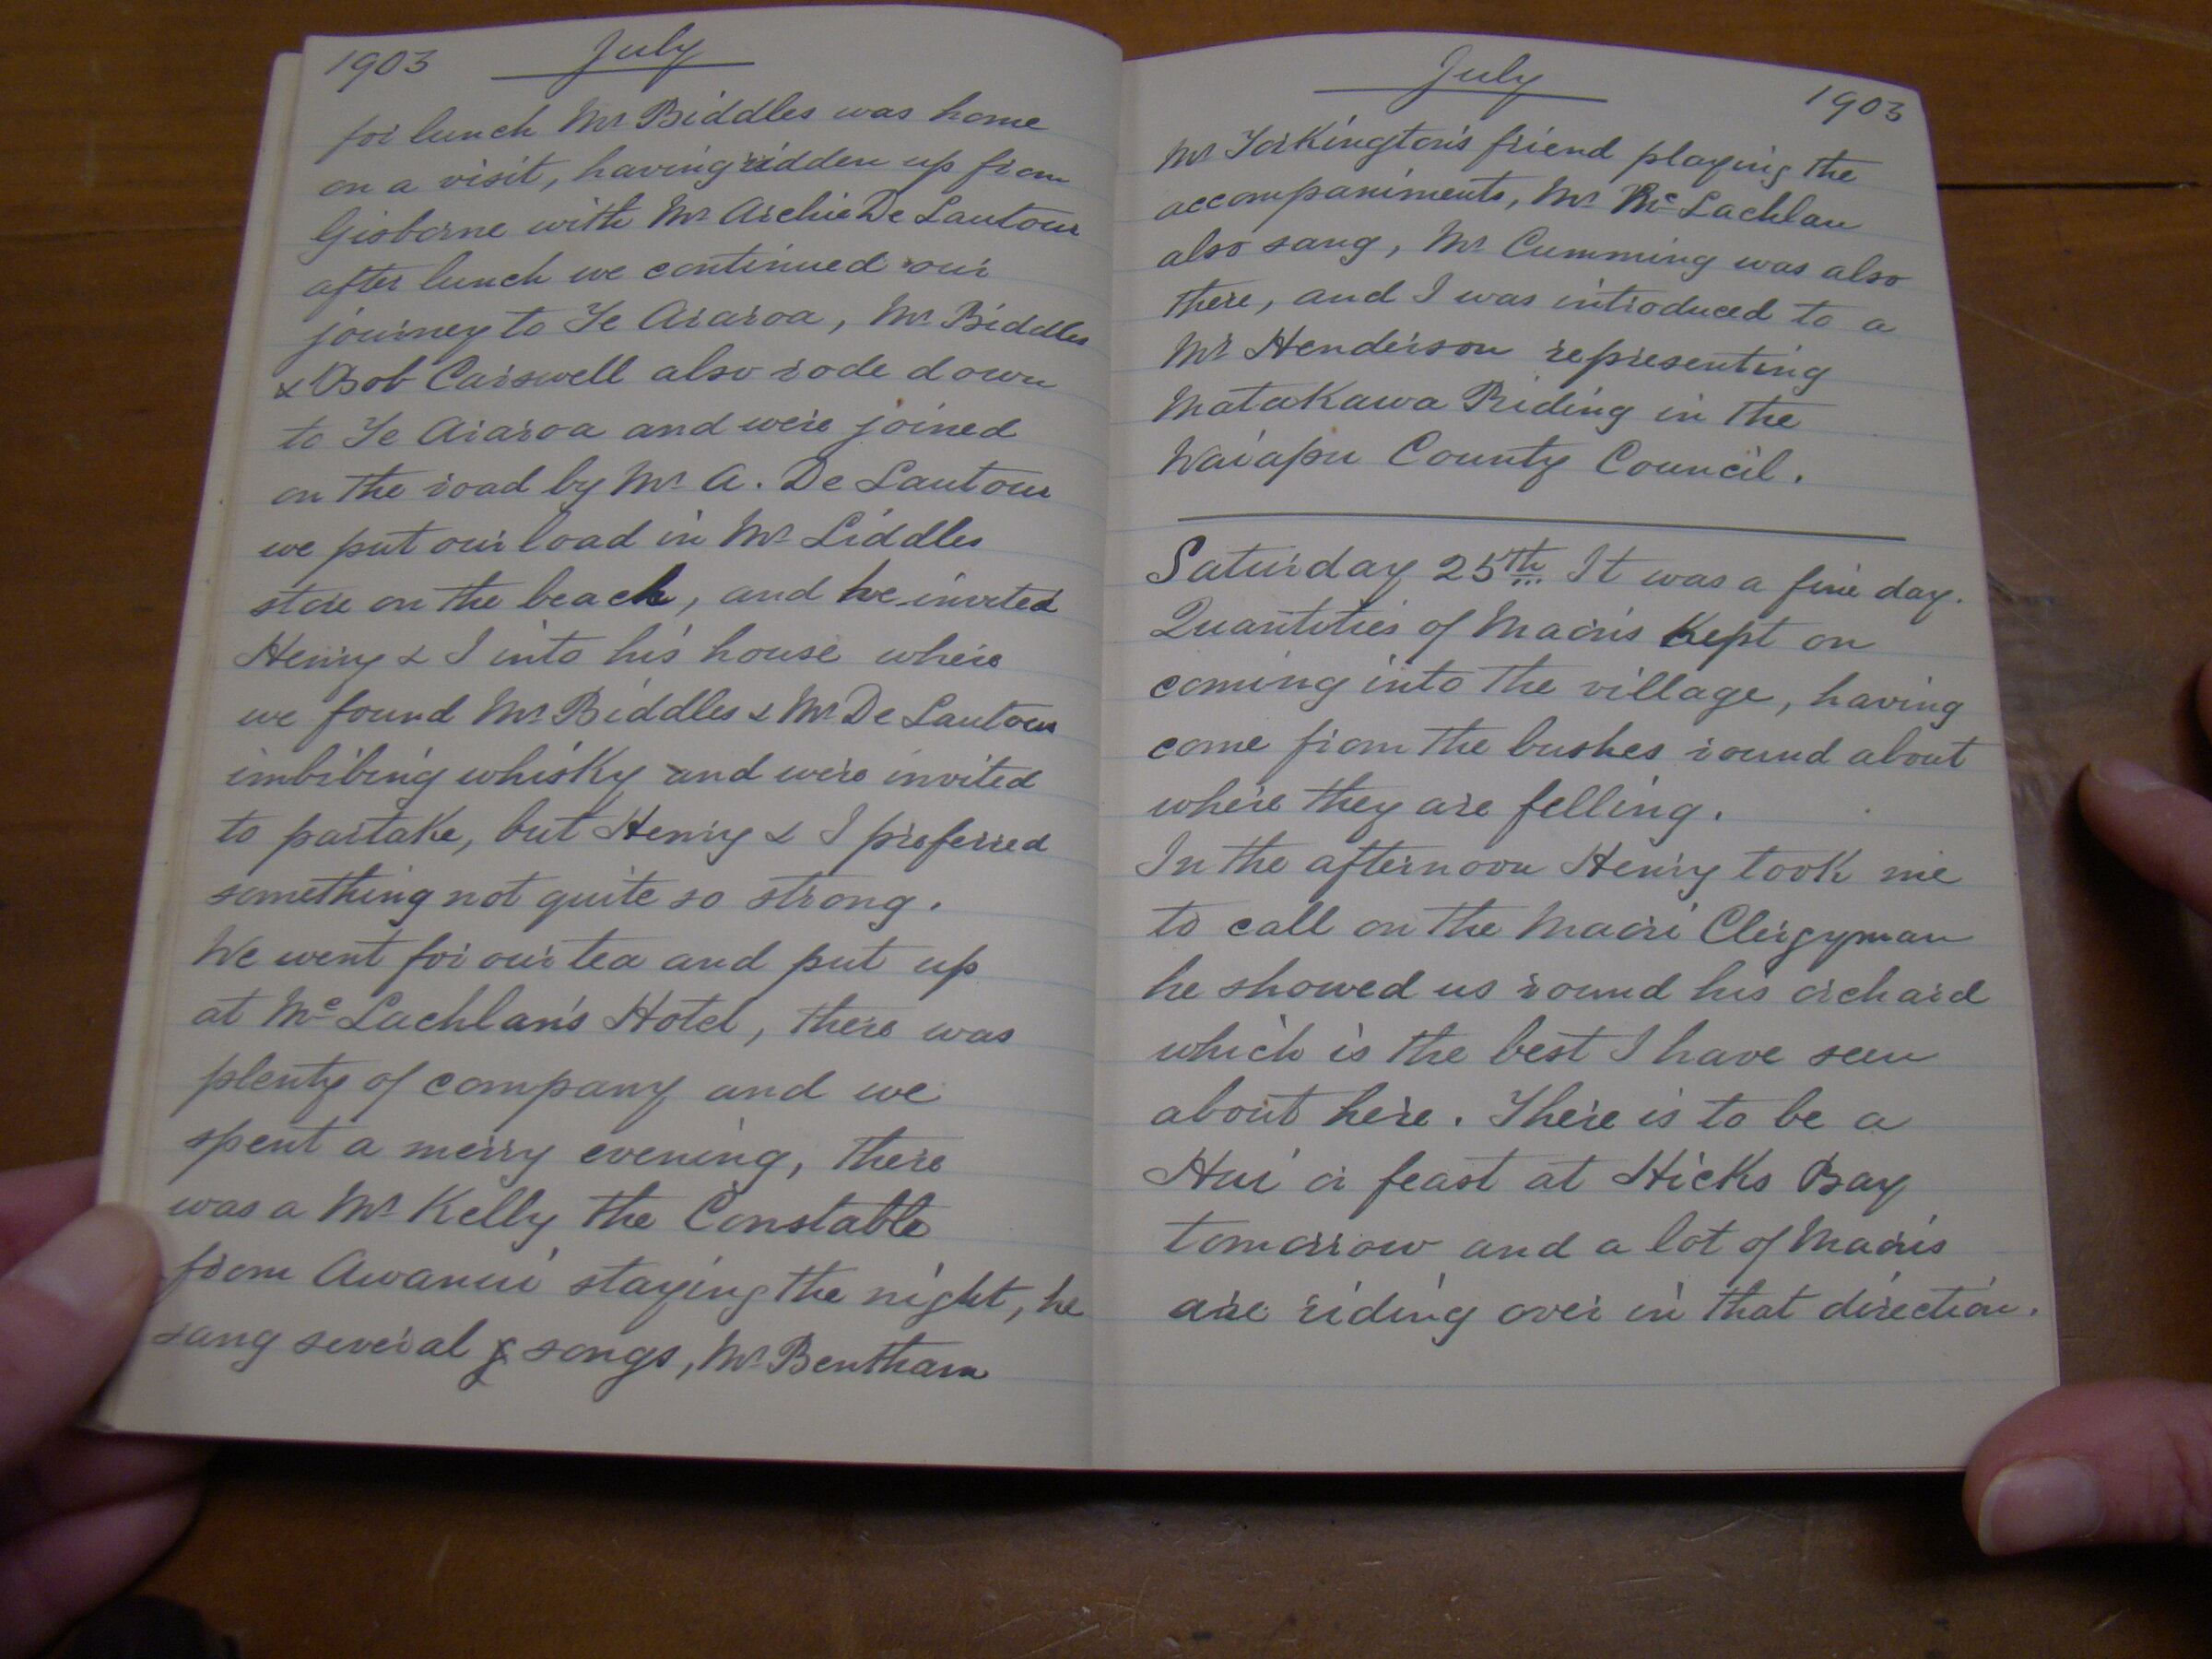 1903 July
for lunch Mr Biddles was home
on a visit, having ridden up from
Gisborne with Mr Archie De Lautour
after lunch we continued our
journey to Te Araroa, Mr Biddles
& Bob Carswell also rode down
to Te Araroa and were joined
on the road by Mr A. De Lautour
we put our load in Mr Liddles
store on the beach, and he invited
Henry & I into his house where
we found Mr Biddles & Mr De Lautour
imbibing whisky and were invited
to partake, but Henry & I preferred
something not quite so strong.
We went for our tea and put up
at McLachlan's Hotel, there was
plenty of company and we
spent a merry evening, there
was a Mr Kelly the Constable
from Awanui staying the night, he
sang several songs, Mr Bentham
July 1903
Mr Torkington's friend playing the
accompaniments, Mr McLachlan
also sang, Mr Cumming was also
there, and I was introduced to a
Mr Henderson representing
Matakawa Riding in the
Waiapu County Council.
Saturday 25th It was a fine day.
Quantities of Maoris kept on
coming into the village, having
come from the bushes round about
where they are felling.
In the afternoon Henry took me
to call on the Maori Clergyman
he showed us round his orchard
which is the best I have seen
about here. There is to be a
Hui or feast at Hicks Bay
tomorrow and a lot of Maoris
are riding over in that direction.